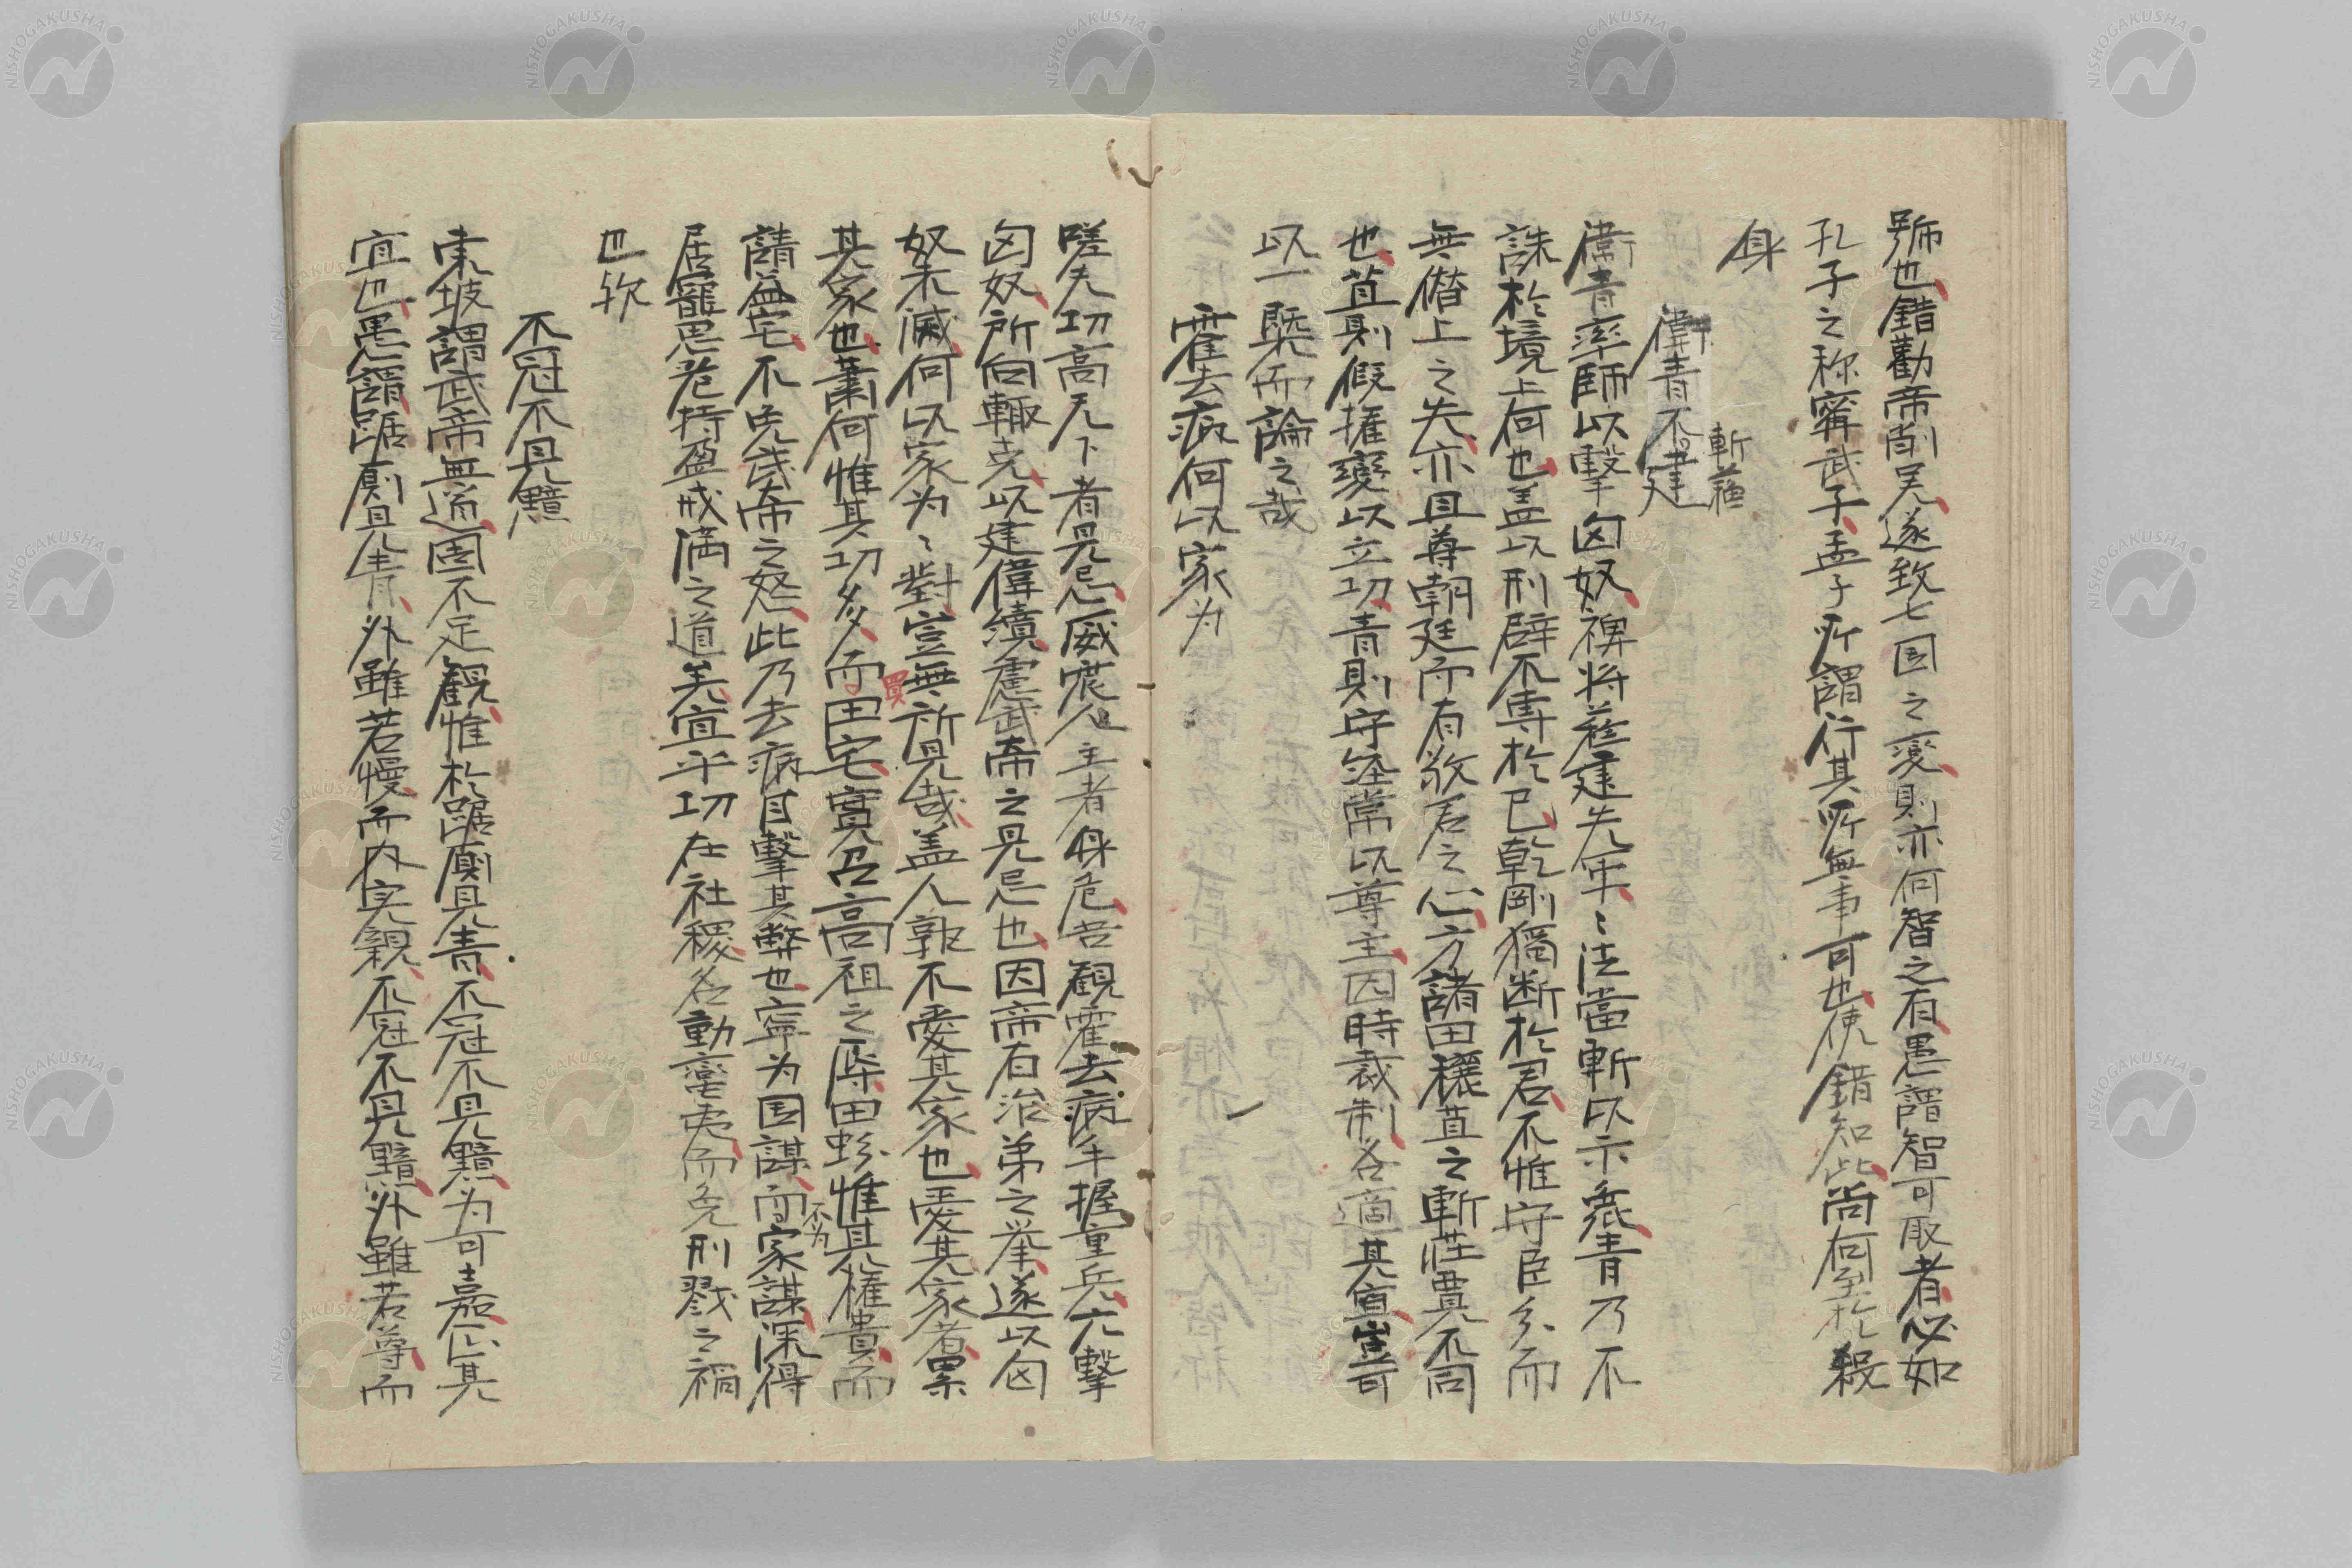 號也錯勸帝削吴遂致七国之変則亦何智之有愚謂智可取者必如
孔子之称寗武子孟子所謂行其所無事可也使錯知此尚何至於殺
身
衛青不斬蘓建
衛青率師以擊匈奴裨将蘓建先軍〻法當斬以示衆青乃不
誅於境上何也盖以刑辟不專於己乾剛獨断於君不惟守臣分而
無僭上之失亦且尊朝廷而有敬君之心方諸田穰苴之斬荘賈不同
也苴則假權變以立功青則守經常以尊主因時裁制各適其宜豈可
以一槩而論之哉
霍去病何以家为
嗟夫功高天下者見忌威震人主者身危吾観霍去病手握重兵六擊
匈奴所向輙克以建偉績慮武帝之見忌也因帝有治弟之举遂以匈
奴未滅何以家为〻對豈無所見哉盖人孰不愛其家也愛其家者累
其家也蕭何惟其功多而買田宅寔召高祖之辱田蚡惟其權貴而
請益宅不免武帝之怒此乃去病目擊其弊也寧为国謀而不为家謀深得
居寵思危持盈戒満之道矣宜乎功在社稷名動蛮夷而免刑戮之禍
也欤
不冠不見黯
東坡謂武帝無道固不足観惟於踞厠見青不冠不見黯为可嘉以其
宜也愚謂踞厠見青外雖若慢而内実親不冠不見黯外雖若尊而
NISHOGAKUSHA